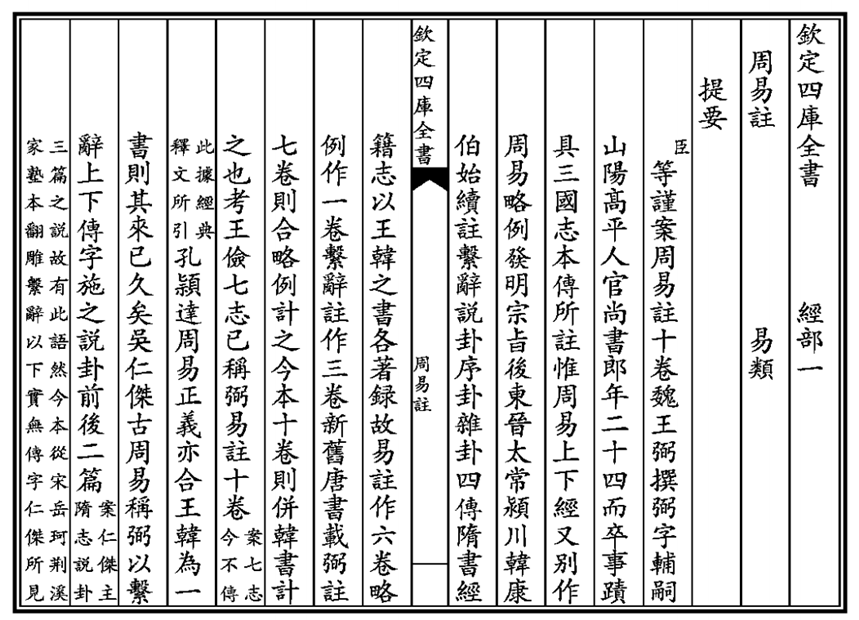 欽定四庫全書 經部一
周易註 易類
提要
臣等謹案周易註十卷魏王弼撰弼字輔嗣
山陽髙平人官尚書郎年二十四而卒事蹟
具三國志本傳所註惟周易上下經又別作
周易略例發明宗㫖後東晉太常潁川韓康
伯始續註繫辭説卦序卦雜卦四傳隋書經
欽定四庫全書 周易註
籍志以王韓之書各著録故易註作六卷略
例作一卷繫辭註作三卷新舊唐書載弼註
七卷則合略例計之今本十卷則併韓書計
之也考王儉七志已稱弼易註十卷案七志今不傳
此據經典釋文所引孔穎達周易正義亦合王韓為一
書則其來已久矣吳仁傑古周易稱弼以繫
辭上下傳字施之説卦前後二篇案仁傑主隋志説卦
三篇之説故有此語然今本從宋岳珂荆溪家塾本翻雕繫辭以下實無傳字仁傑所見